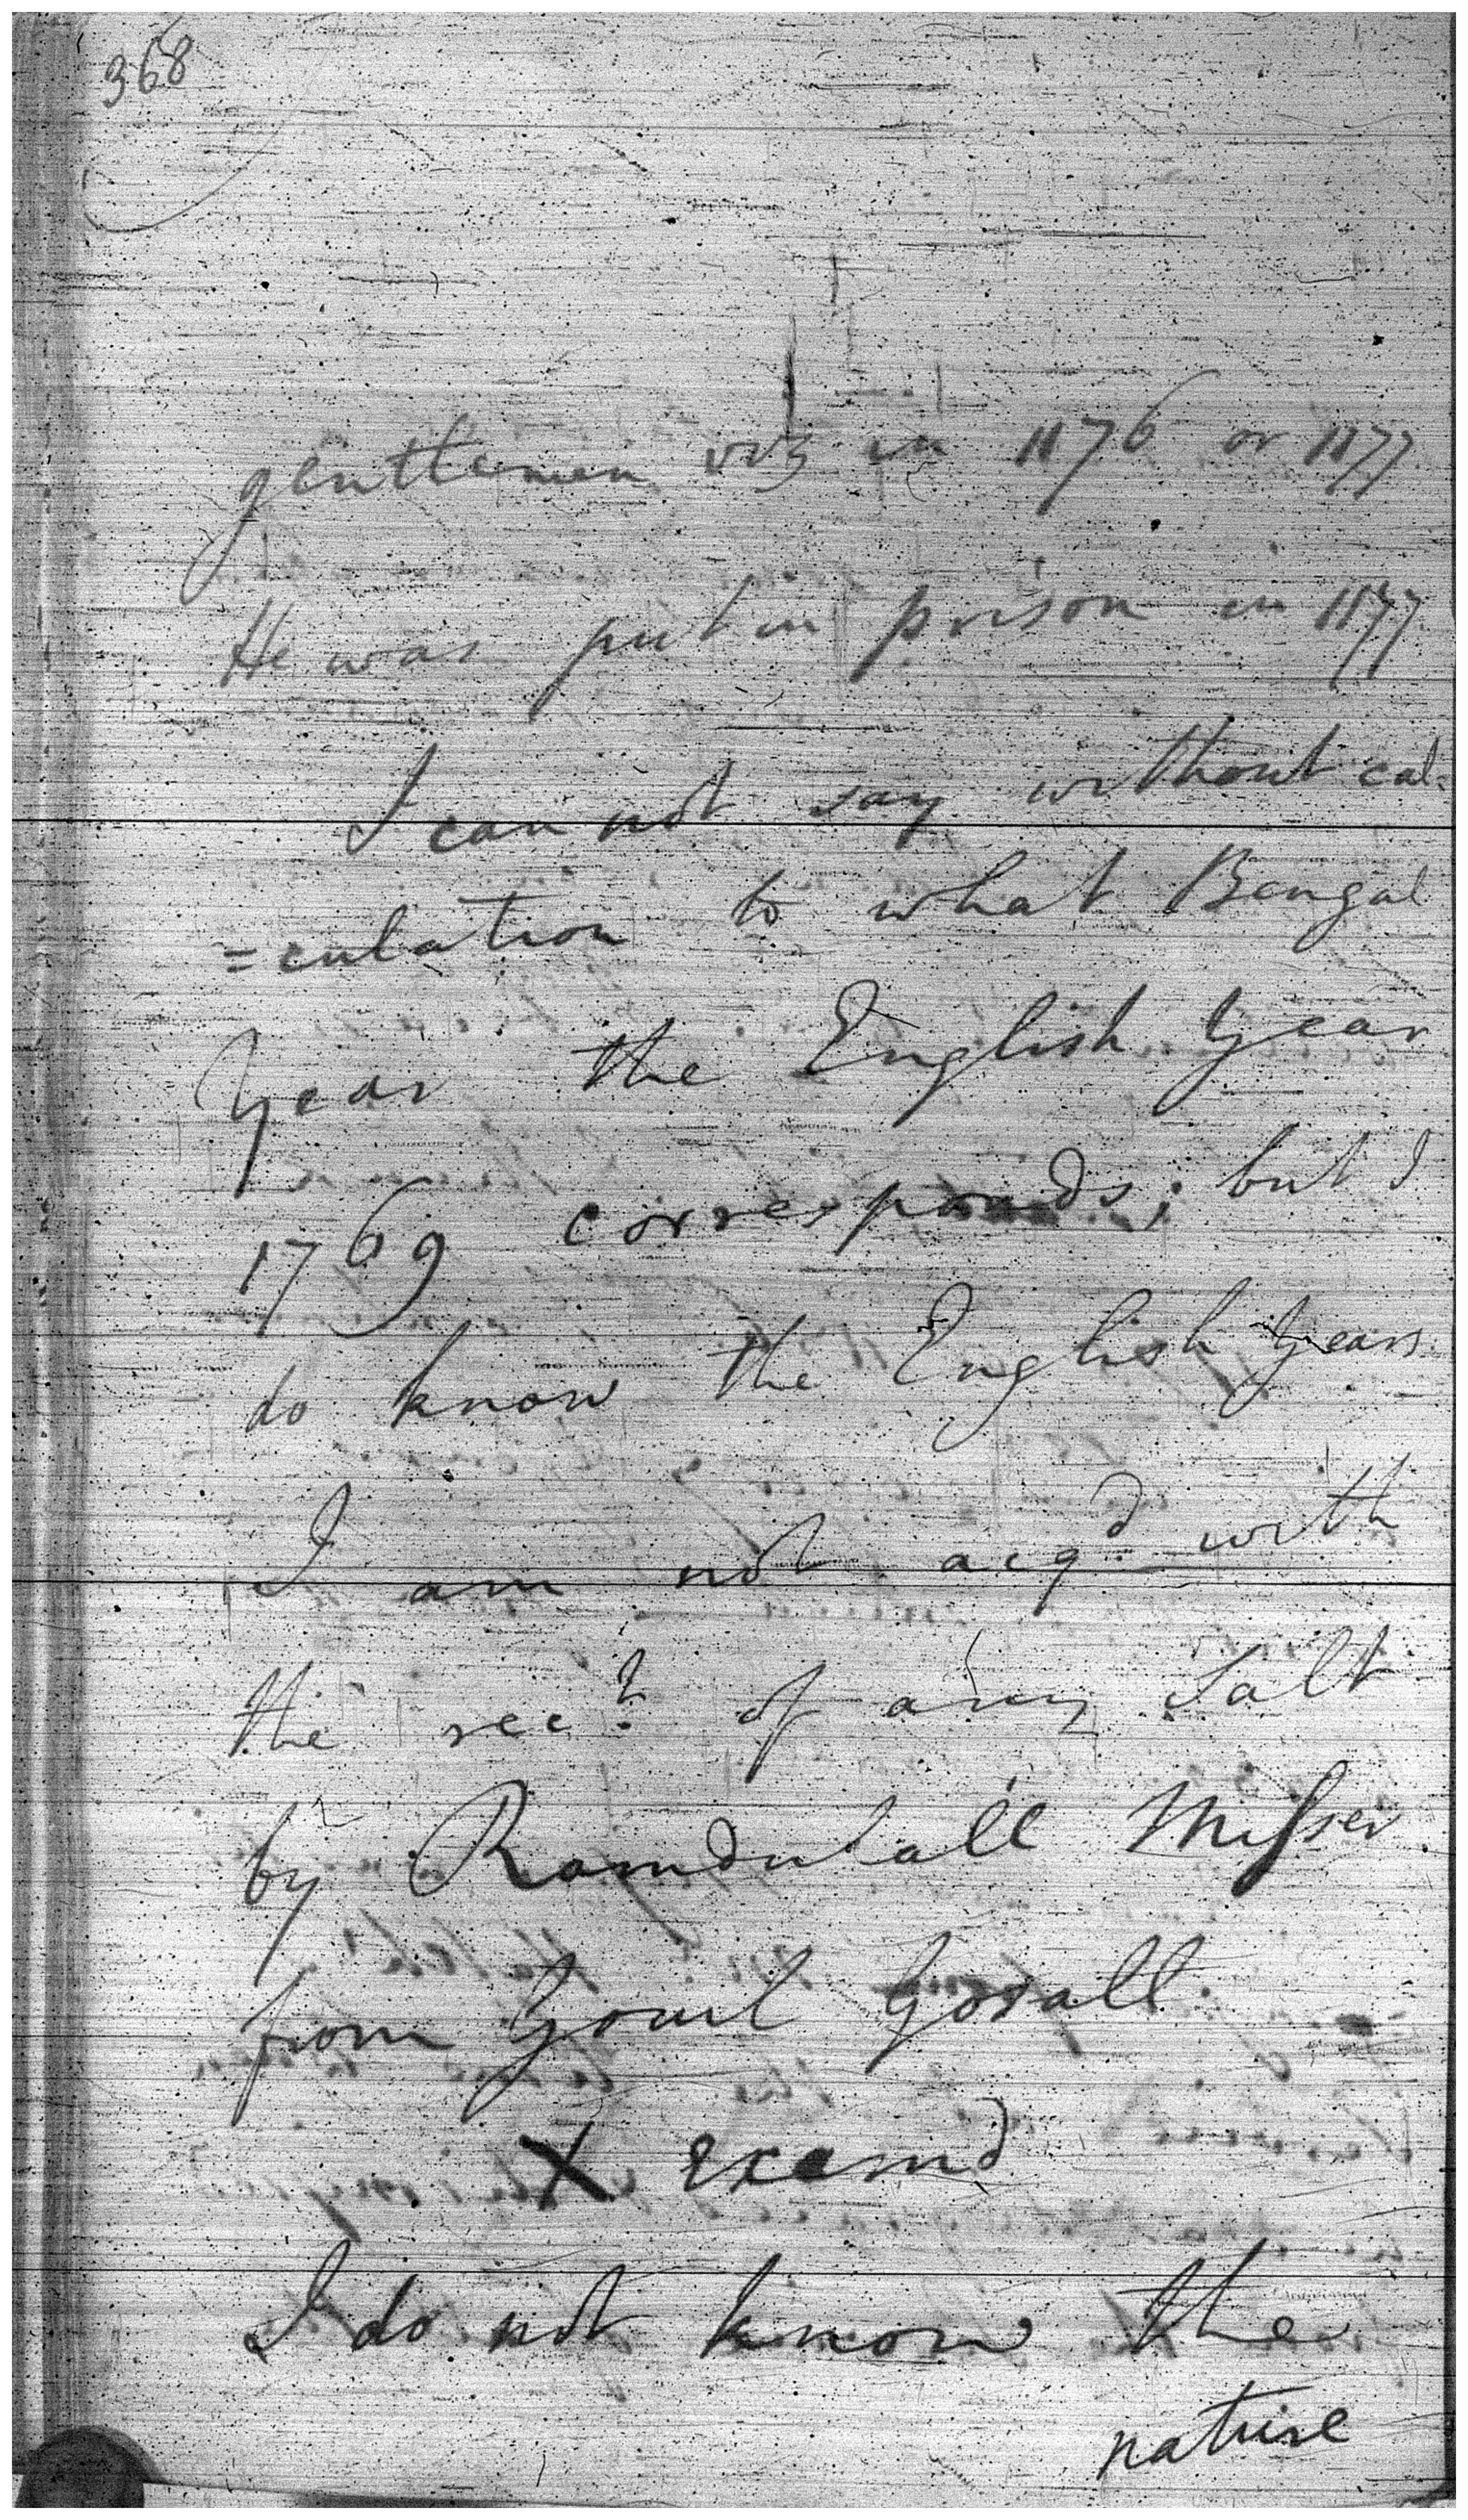 368
gentlemen viz in 1176 or 1177
He was put in prison in 1177
I can not say without cal=
=culation to what Bengal
Year the English Year
1769 corresponds; but I
do know the English Years
I am not acqd with
the rect of any Salt
by Ramdulall Misser
from Gocul Gosall
X examd
I do not know the
nature